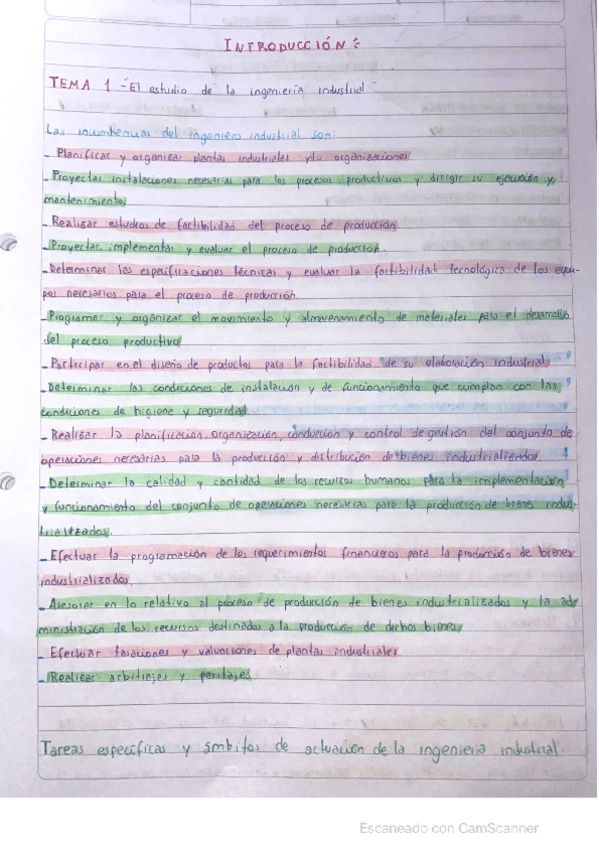 INTRODUCCIÓN:
TEMA 1 - "El estudio de la ingeniería industrial"
Las incumbencias del ingeniero industrial son:
- Planificar y organizar plantas industriales y/u organizaciones
- Proyectar instalaciones necesarias para los procesos productivos y dirigir su ejecución y
mantenimiento
- Realizar estudios de factibilidad del proceso de producción.
- Proyectar, implementar y evaluar el proceso de producción.
- Determinar las especificaciones técnicas y evaluar la factibilidad tecnológica de los equi-
pos necesarios para el proceso de producción.
- Programar y organizar el movimiento y almacenamiento de materiales para el desarrollo
del proceso productivo
- Participar en el diseño de productos para la factibilidad de su elaboración industrial
- Determinar las condiciones de instalación y de funcionamiento que cumplan con las
condiciones de higiene y seguridad
- Realizar la planificación, organización, conducción y control de gestión del conjunto de
operaciones necesarias para la producción y distribución de bienes industrializados.
- Determinar la calidad y cantidad de los recursos humanos para la implementación
y funcionamiento del conjunto de operaciones necesarias para la producción de bienes indus-
trializados.
- Efectuar la programación de los requerimientos financieros para la producción de bienes
industrializados.
- Asesorar en lo relativo al proceso de producción de bienes industrializados y la ad-
ministración de los recursos destinados a la producción de dichos bienes
- Efectuar tasaciones y valuaciones de plantas industriales
- Realizar arbitrajes y peritajes
Tareas específicas y ámbitos de actuación de la ingeniería industrial.
Escaneado con CamScanner